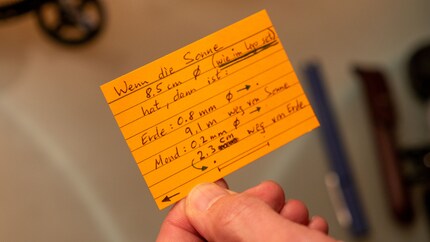 Wenn die Sonne
8.5 cm ∅ (wie im Logo ist)
hat, dann ist:
Erde: 0.8 mm ∅ →
9.1 m weg von Sonne
Mond: 0.2 mm ∅ →
2.3 cm weg von Erde